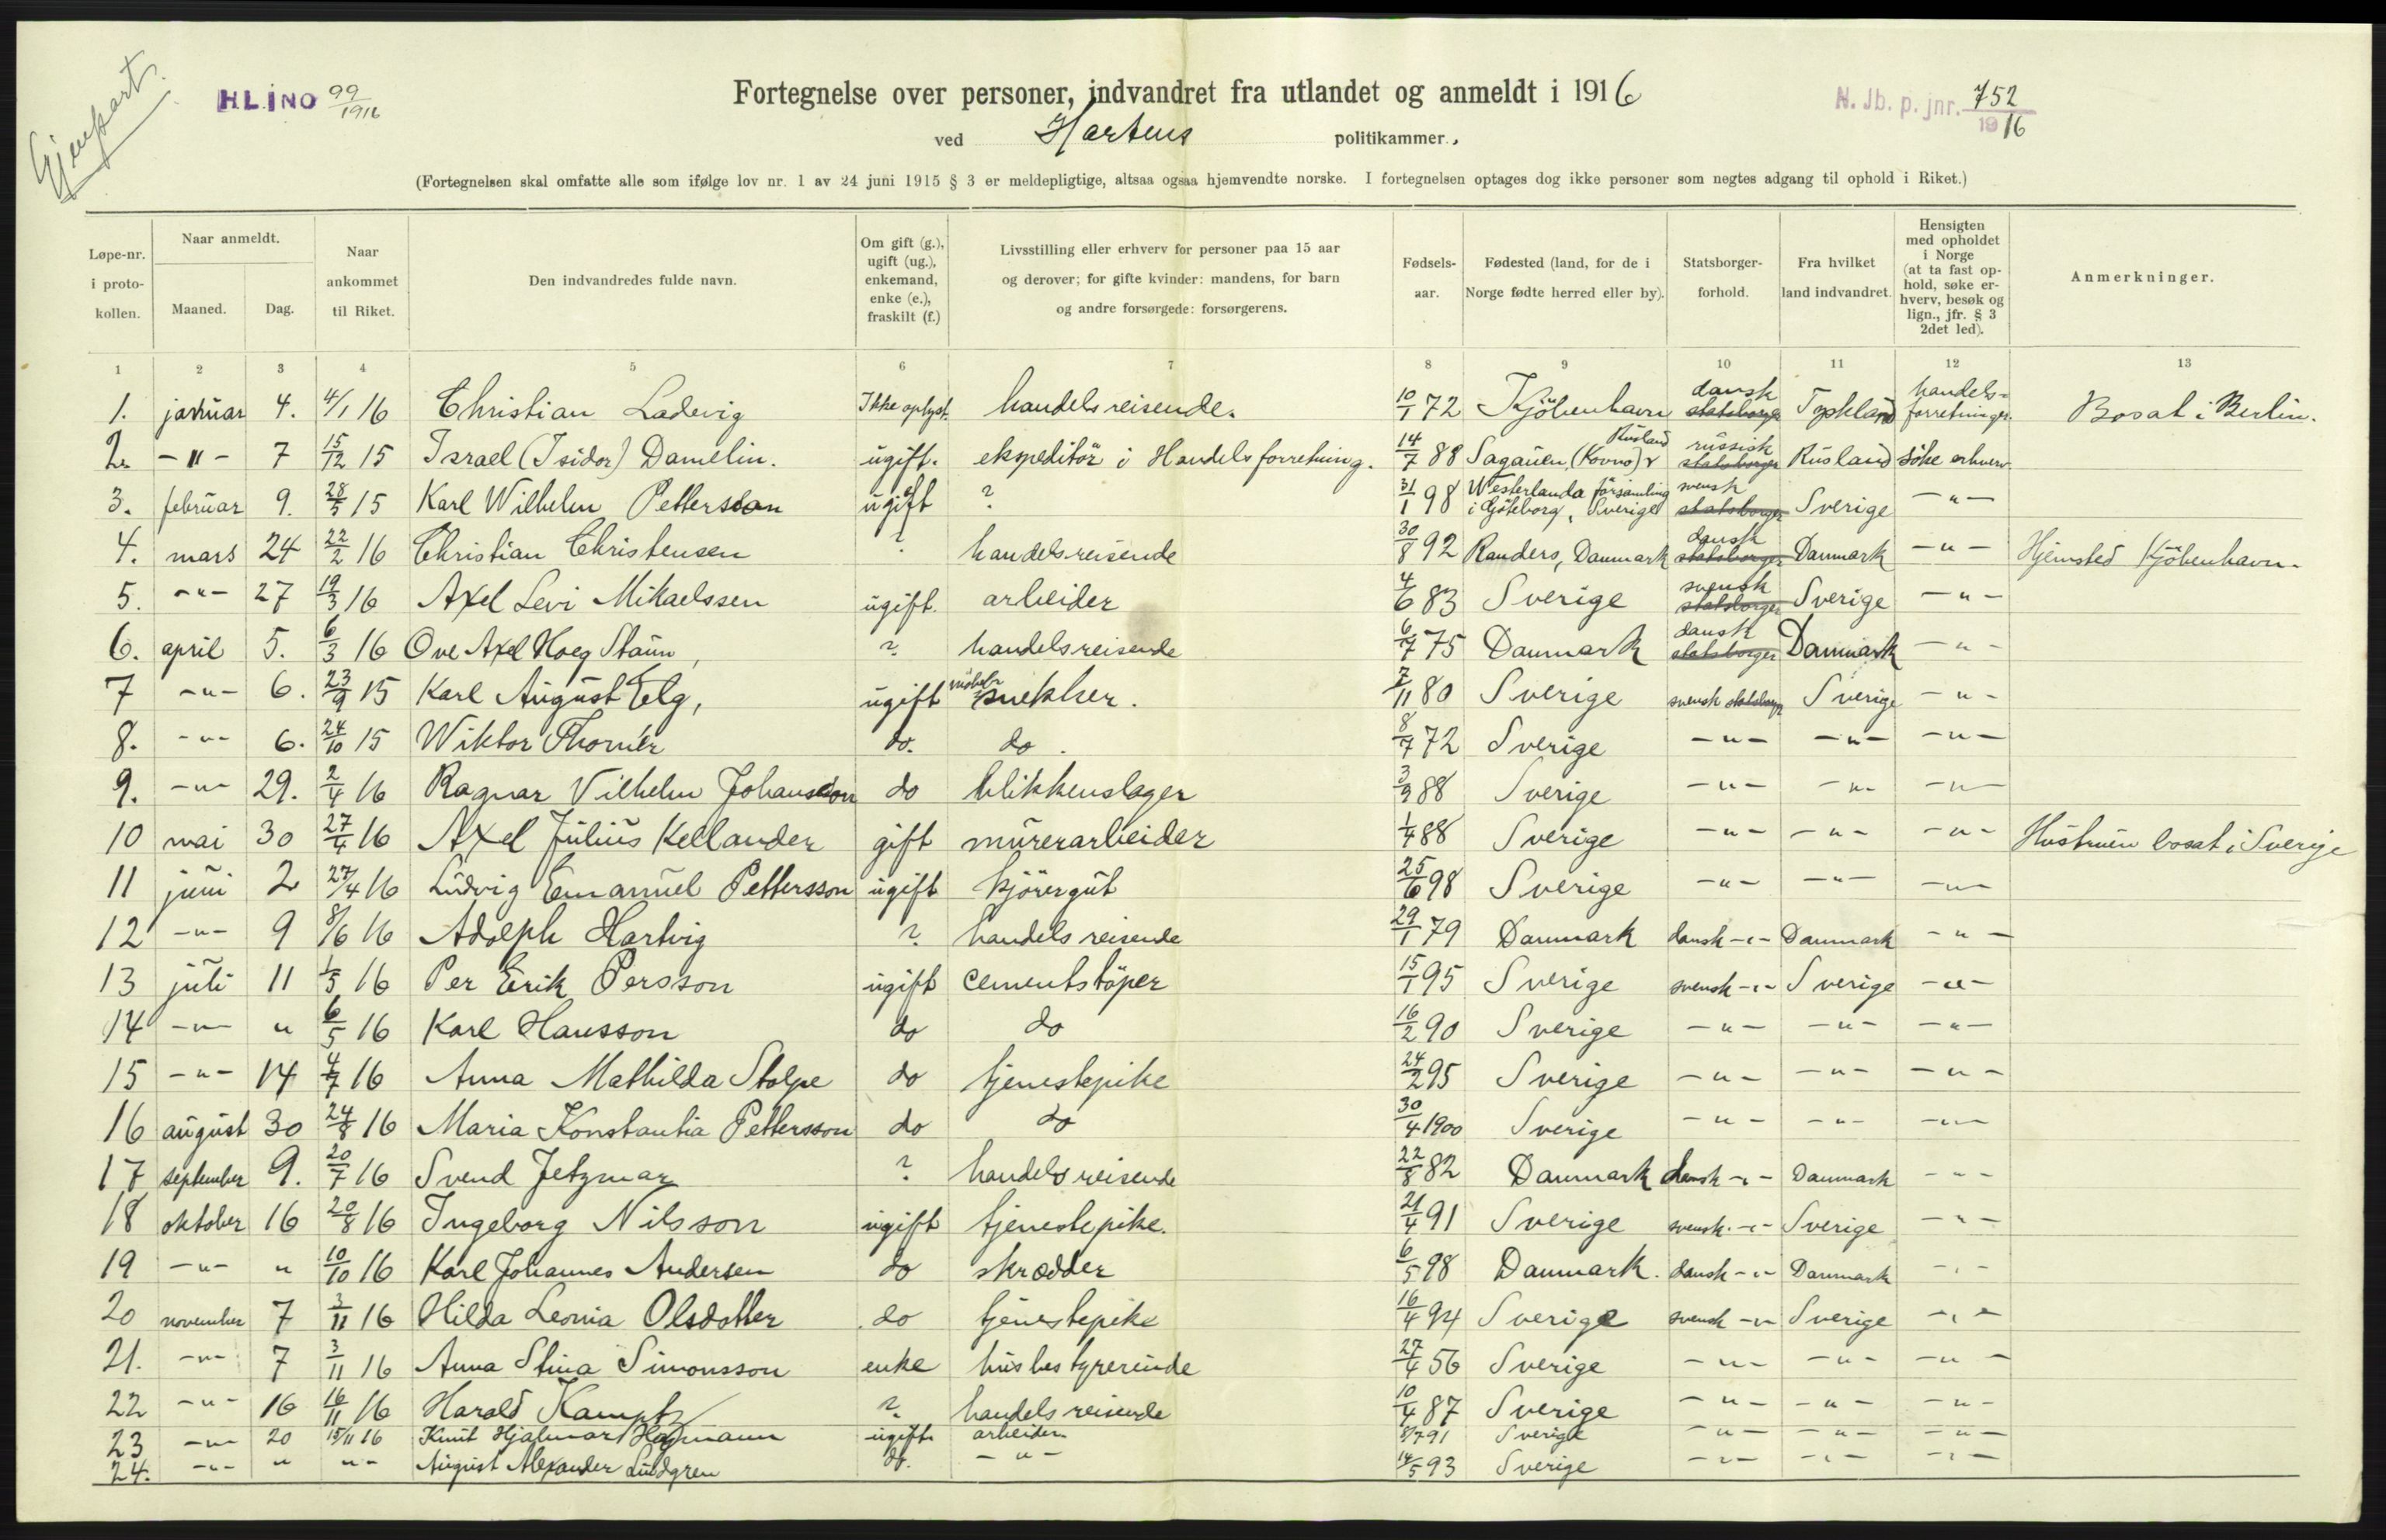 Gjenpart.
HLINO 99/1916
Fortegnelse over personer, indvandret fra utlandet og anmeldt i 1916
N. Jb. p. jnr. 752/1916
ved Hortens politikammer.
(Fortegnelsen skal omfatte alle som ifølge lov nr. 1 av 24 juni 1915 § 3 er meldepligtige, altsaa ogsaa hjemvendte norske. I fortegnelsen optages dog ikke personer som negtes adgang til ophold i Riket.)
Løpe-nr. i proto-kollen.
Naar anmeldt.
Maaned. Dag.
Naar ankommet til Riket.
Den indvandredes fulde navn.
Om gift (g.), ugift (ug.), enkemand, enke (e.), fraskilt (f.)
Livsstilling eller erhverv for personer paa 15 aar og derover; for gifte kvinder: mandens, for barn og andre forsørgede: forsørgerens.
Fødsels-aar.
Fødested (land, for de i Norge fødte herred eller by).
Statsborger-forhold.
Fra hvilket land indvandret.
Hensigten med opholdet i Norge (at ta fast op-hold, søke er-hverv, besøk og lign., jfr. § 3 2det led).
Anmerkninger.
1 2 3 4 5 6 7 8 9 10 11 12 13
1. januar 4. 4/1 16 Christian Ladevig Ikke oplyst. handelsreisende. 10/1 72 Kjöbenhavn dansk statsborger Tyskland handels-forretninger Bosat i Berlin.
2. -"- 7 15/12 15 Israel (Isidor) Damelin. ugift. ekspeditör i Handelsforretning. 14/7 88 Sagauen (Kovno) Rusland russisk statsborger Rusland söke erhverv
3. februar 9. 28/5 15 Karl Wilhelm Pettersson ugift ? 31/1 98 Westerlanda församling i Göteborg, Sverige svensk statsborger Sverige -"-
4. mars 24 22/2 16 Christian Christensen ? handelsreisende 30/8 92 Randers, Danmark dansk statsborger Danmark -"- Hjemsted Kjöbenhavn.
5. -"- 27 19/3 16 Axel Levi Mikaelssen ugift. arbeider 4/6 83 Sverige svensk statsborger Sverige -"-
6. april 5. 6/3 16 Ove Axel Hoeg Staun, ? handelsreisende 6/7 75 Danmark dansk statsborger Danmark -"-
7 -"- 6. 23/9 15 Karl August Elg, ugift möbelsnekker. 7/11 80 Sverige svensk statsborger Sverige -"-
8. -"- 6. 24/10 15 Wiktor Thornér do. do. 8/7 72 Sverige -"- -"- -"-
9. -"- 29. 2/4 16 Ragnar Vilhelm Johansson do blikkenslager 3/9 88 Sverige -"- -"- -"-
10 mai 30 27/4 16 Axel Julius Kellander gift murerarbeider 1/4 88 Sverige -"- -"- -"- Hustruen bosat i Sverige
11 juni 2 27/4 16 Ludvig Emanuel Pettersson ugift kjörergut 25/6 98 Sverige -"- -"- -"-
12 -"- 9 8/6 16 Adolph Hartvig ? handelsreisende 29/1 79 Danmark dansk -"- Danmark -"-
13 juli 11 1/5 16 Per Erik Persson ugift cementstöper 15/1 95 Sverige svensk -"- Sverige -"-
14 -"- " 6/5 16 Karl Hansson do do 16/2 90 Sverige -"- -"- -"-
15 -"- 14 4/7 16 Anna Mathilda Stolpe do tjenestepike 24/2 95 Sverige -"- -"- -"-
16 august 30 24/8 16 Maria Konstantia Pettersson do do 30/4 1900 Sverige -"- -"- -"-
17 september 9. 20/7 16 Svend Jetzmar ? handelsreisende 22/8 82 Danmark dansk -"- Danmark -"-
18 oktober 16 20/8 16 Ingeborg Nilsson ugift tjenestepike. 21/4 91 Sverige svensk -"- Sverige -"-
19 -"- " 10/10 16 Karl Johannes Andersen do skrædder 6/5 98 Danmark. dansk -"- Danmark -"-
20 november 7 3/11 16 Hilda Leonia Olsdotter do tjenestepike 16/4 94 Sverige svensk -"- Sverige -"-
21. -"- 7 3/11 16 Anna Stina Simonsson enke husbestyrerinde 27/4 56 Sverige -"- -"- -"-
22 -"- 16 16/11 16 Harald Kamptz ? handelsreisende 10/4 87 Sverige -"- -"- -"-
23 -"- 20 15/11 16 Knut Hjalmar Hagmann ugift arbeider 8/7 91 Sverige -"- -"- -"-
24. -"- " "- August Alexander Lundgren do. -"- 14/5 93 Sverige -"- -"- -"-